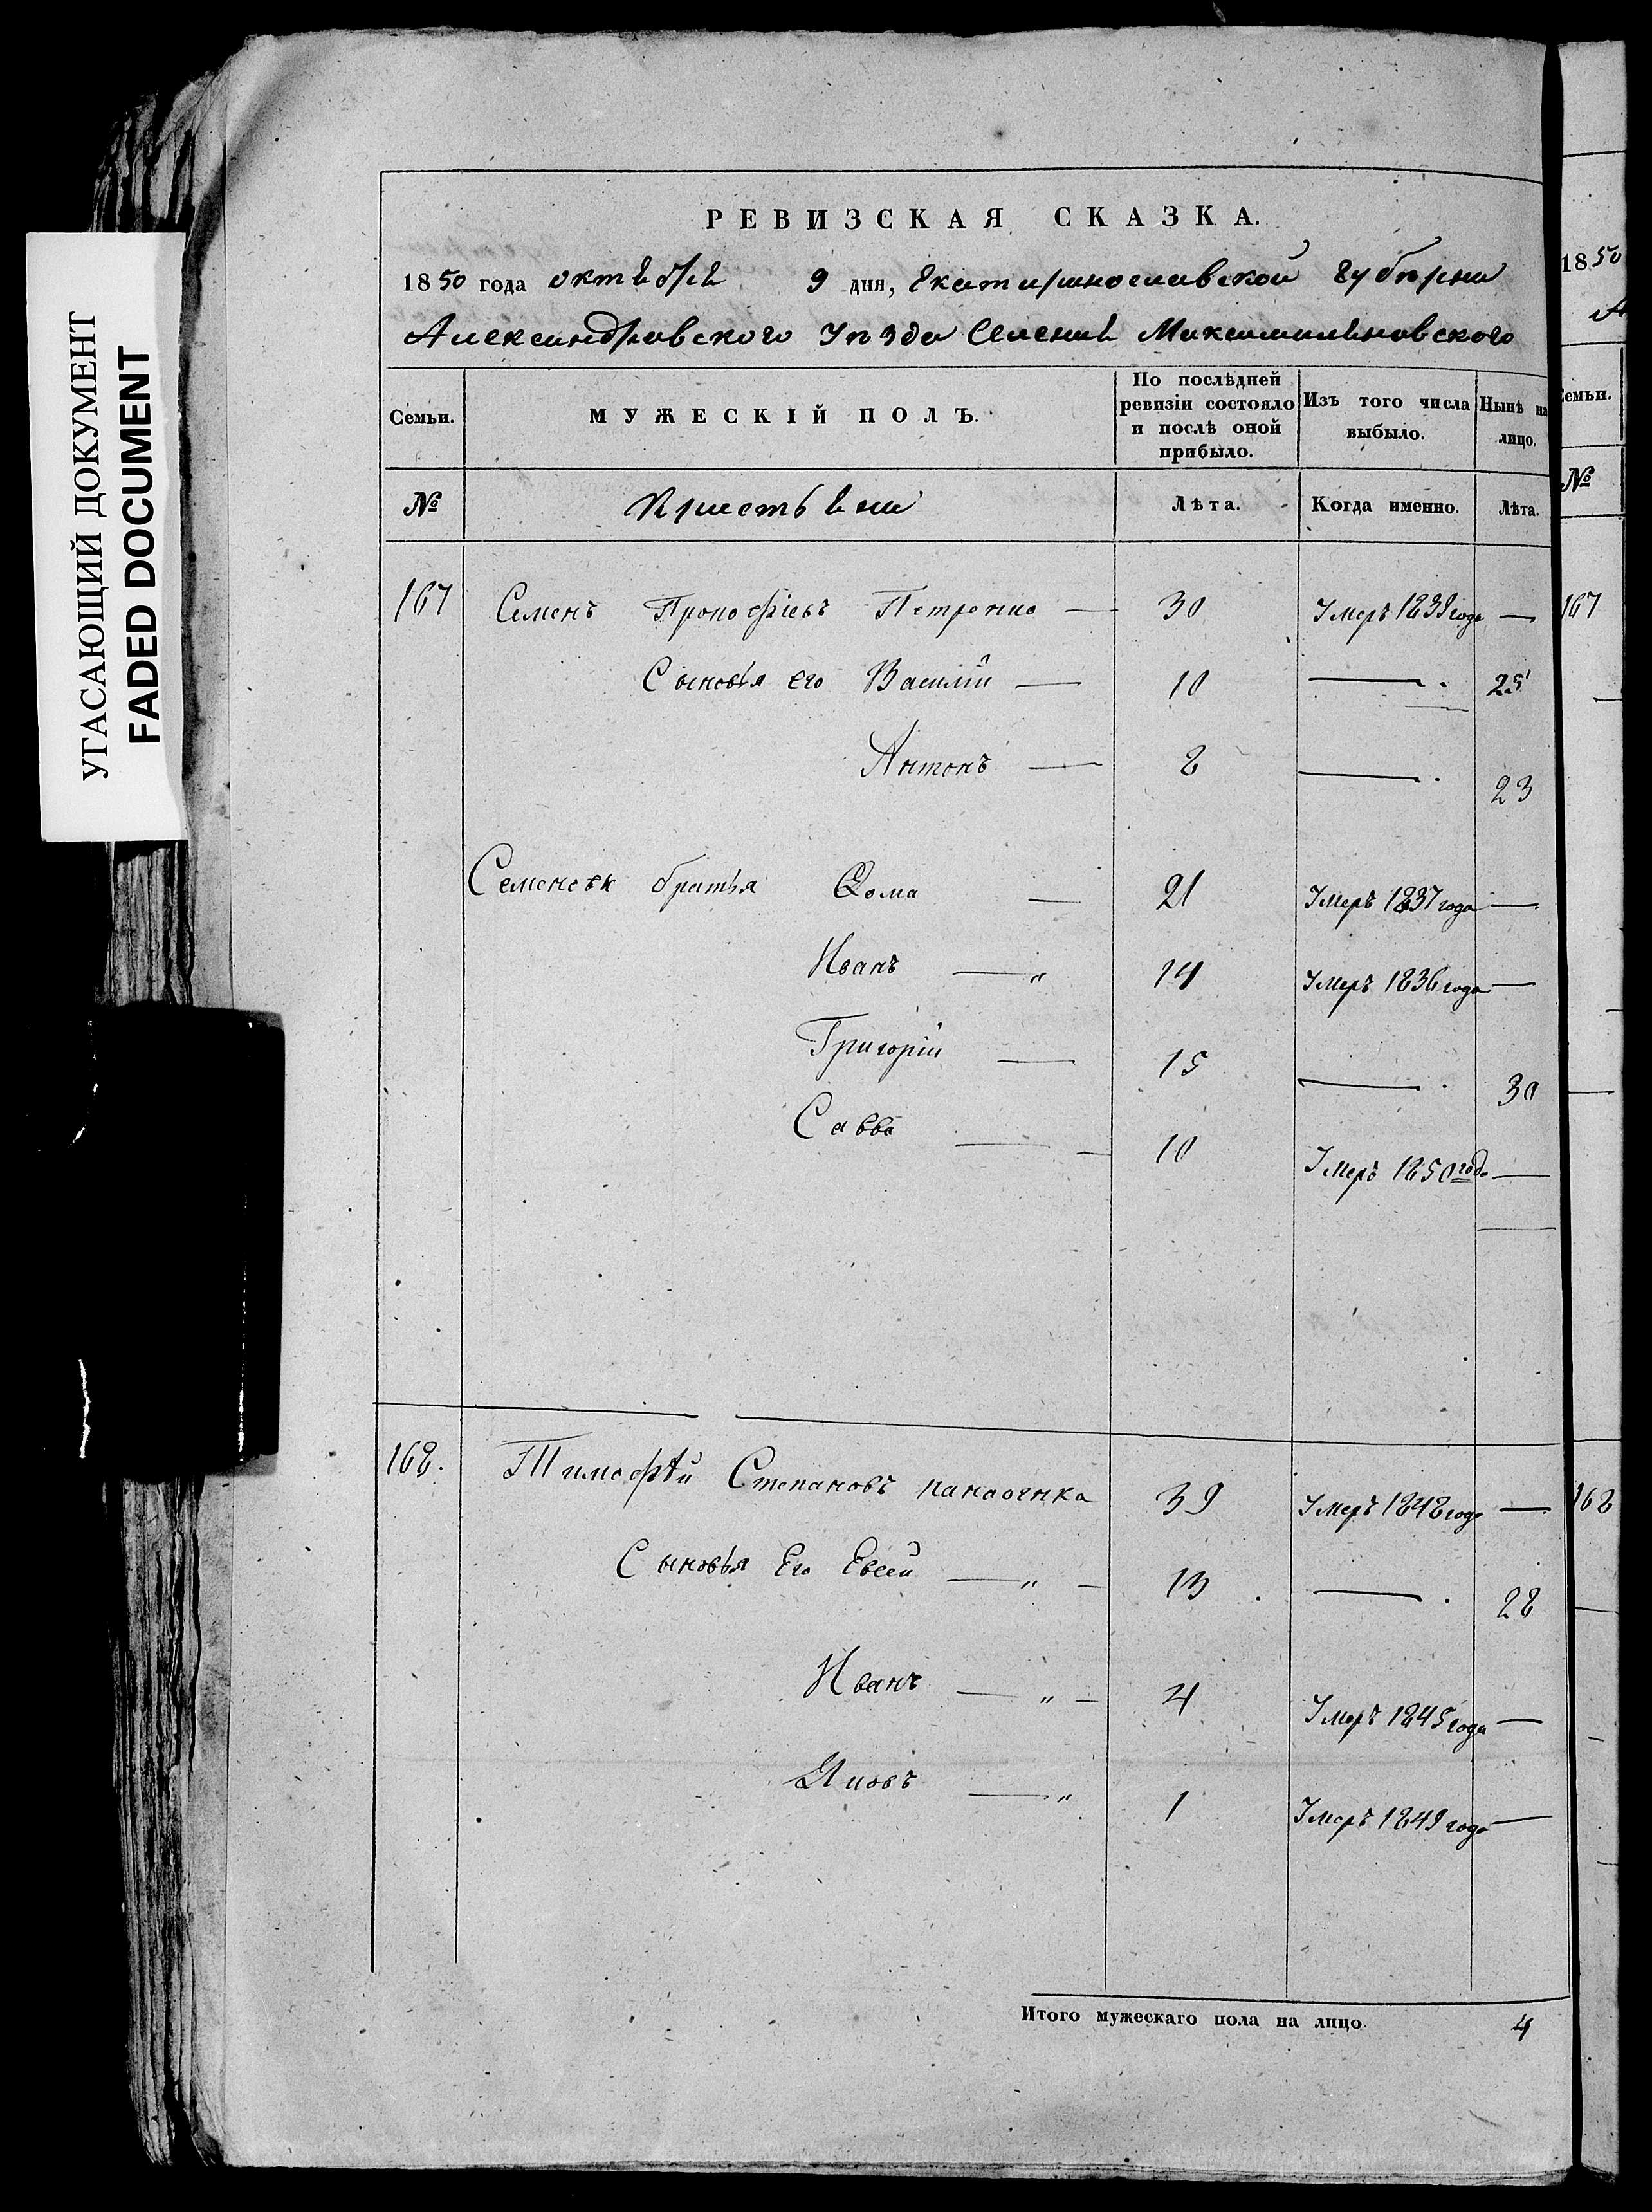 УГАСАЮЩИЙ ДОКУМЕНТ
FADED DOCUMENT
РЕВИЗСКАЯ СКАЗКА.
1850 года октября 9 дня, Екатеринославской губернии
Александровского уезда Селения Максимильяновского
Семьи. МУЖЕСКІЙ ПОЛЪ. По послѣдней ревизіи состояло и послѣ оной прибыло. Изъ того числа выбыло. Нынѣ на лицо.
№ Крестьяне Лѣта. Когда именно. Лѣта.
167 Семенъ Прокофіевъ Петренко — 30 Умеръ 1839 года —
Сыновья его Василій — 10 — 25
Антонъ — 8 — 23
Семеновы братья Фома — 21 Умеръ 1837 года —
Иванъ — " 14 Умеръ 1836 года —
Григорій — 15 — 30
Савва — 10 Умеръ 1850 года —
168. Тимофѣй Степановъ 39 Умеръ 1848 года —
Сыновья Его Евсей — " — 13 — 28
Иванъ — " — 4 Умеръ 1845 года —
Яковъ — " 1 Умеръ 1849 года —
Итого мужескаго пола на лицо 4
1850
Семьи.
№
167
168